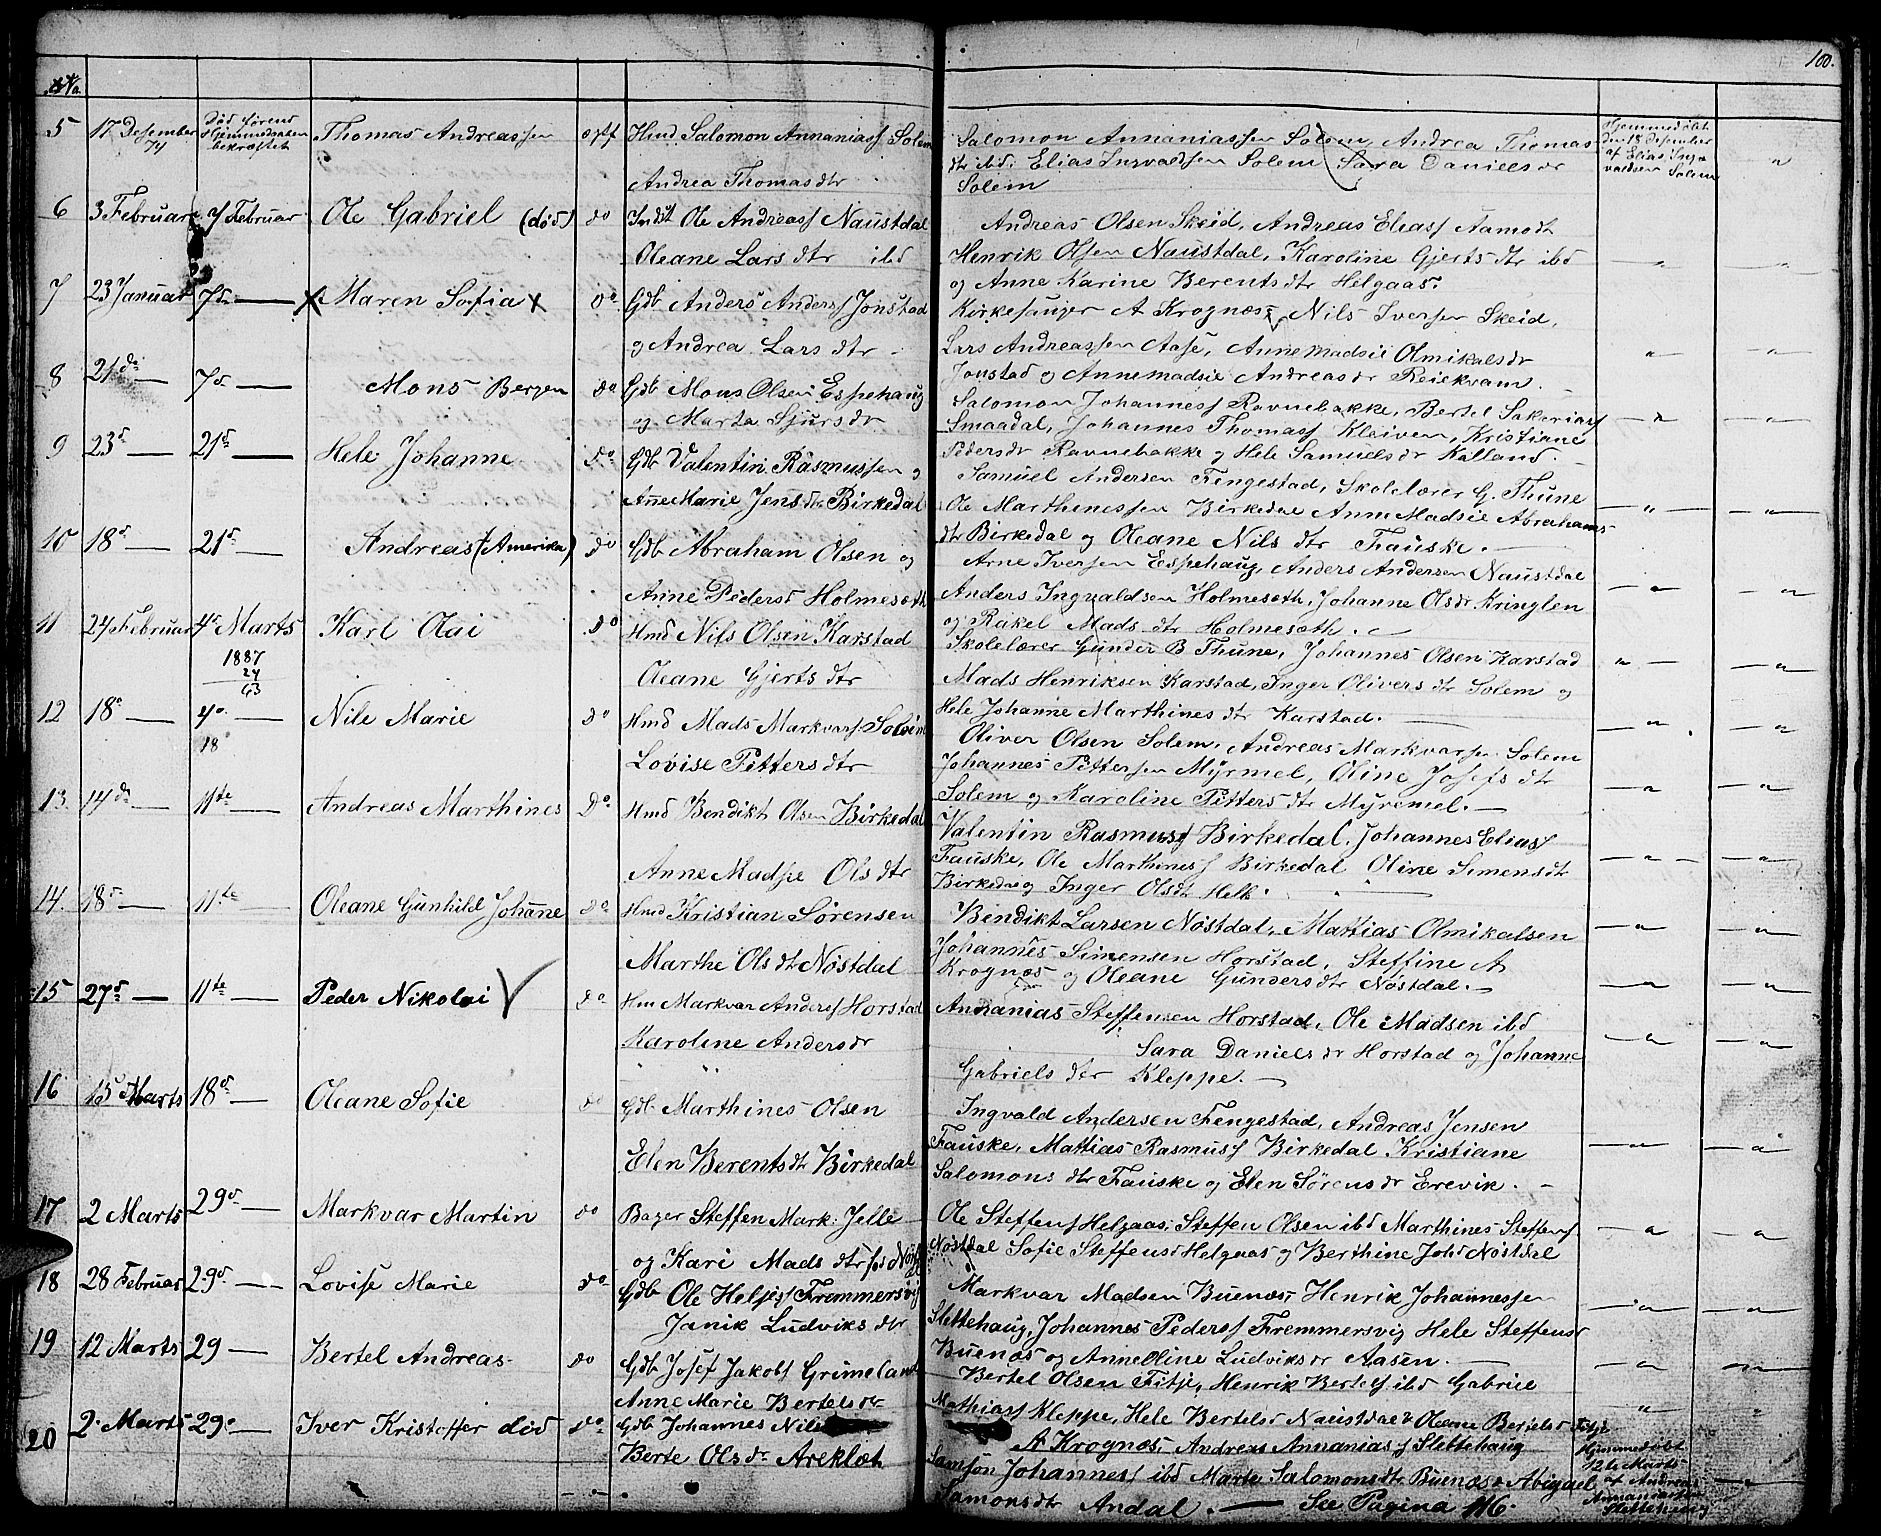 100.
No.
5 17 Desember 74 Død førend Hjemmedaaben bekræftet Thomas Andreassen opf Hmd Salomon Annaniass Solem
Andrea Thomasdtr
Salomon Annaniassen Solem, Andrea Thomas
dtr ibd. Elias Ingvaldsen Solem Sara Daniels dr
Solem
Hjemmedøbt
den 18 Desember
af Elias Ing
valdsen Solem
6 3 Februar 7 Februar Ole Gabriel (død) do Indst Ole Andreass Naustdal
Oleane Lars dtr ibd
Andreas Olsen Skeid, Andreas Eliass Aamodt
Henrik Olsen Naustdal, Karoline Gjerts dtr ibd
og Anne Karine Berents dtr Helgaas.
7 23 Januar 7d. Maren Sofia do Gdb Anders Anderss Jonstad
og Andrea Lars dtr
Kirkesanger A Krognæs Nils Iversen Skeid,
Lars Andreassen Aase, Annemadsie Olmikalsdr
Jonstad og Annemadsie Andreasdr Reiekvam.
8 21 do 7d. Mons Bergen do Gdb Mons Olsen Espehaug
og Marta Sjursdr
Salomon Johanness Ravnebakke, Bertel Sakariass
Smaadal, Johannes Thomass Kleiven, Kristiane
Pedersdr Ravnebakke og Hele Samuelsdr Kalland.
9 23d 21d Hele Johanne do Gdb Valentin Rasmussen og
Anne Marie Jens dtr Birkedal
Samuel Andersen Fengestad, Skolelærer G. Thune
Ole Marthinessen Birkedal Anne Madsie Abrahams
dtr Birkedal og Oleane Nils dtr Fauske.
10 18d 21d Andreas (Amerika) do Gdb Abraham Olsen og
Anne Pedersd Holmesøth
Arne Iversen Espehaug, Anders Andersen Naustdal
Anders Ingvaldsen Holmesøth, Johanne Olsdr Kringlen
og Rakel Mads dtr Holmesøth.
11 24 Februar 4d Marts Karl Olai do Hmd Nils Olsen Karstad
1887
24
63
Oleane Gjerts dtr
Skolelærer Gunder B Thune, Johannes Olsen Karstad
Mads Henriksen Karstad, Inger Olivers dtr Solem og
Hele Johanne Marthines dtr Karstad.
12 18d 4d. Nile Marie do Hmd Mads Markvars Solem
18
Lovise Pitters dtr
Oliver Olsen Solem, Andreas Markvarsen Solem
Johannes Pittersen Myrmel, Oline Josefs dtr
Solem og Karoline Pitters dtr Myremel.
13 14 do 11te Andreas Marthines Do Hmd Bendikt Olsen Birkedal
Anne Madsie Ols dtr
Valentin Rasmuss Birkedal, Johannes Eliass
Fauske, Ole Marthiness Birkedal Oline Simensdt
Birkedal og Inger Olsdt Helle.
14. 18d 11te Oleane Gunhild Johanne do Hmd Kristian Sørensen
Marthe Ols dtr Nøstdal
Bendikt Larsen Nøstdal, Mattias Olmikalsen
Johannes Simensen Horstad, Steffine A
Krognæs og Oleane Gunders dtr Nøstdal.
15 27d 11te Peder Nikolai do Hm Markvar Anderss Horstad
Karoline Andersdr
Annanias Steffensen Horstad, Ole Madsen ibd
Sara Daniels dr Horstad og Johanne
Gabriels dtr Kleppe.
16 15 Marts 18d Oleane Sofie do Gdb Marthines Olsen
Elen Berents dtr Birkedal
Ingvald Andersen Fengestad, Andreas Jensen
Fauske, Mattias Rasmuss Birkedal Kristiane
Salomons dtr Fauske og Elen Sørensdr Erevik.
17 2 Marts 29d Markvar Martin do Bager Steffen Mark. Jelle
og Kari Mads dtr
Ole Steffens Helgaas, Steffen Olsen ibd Marthines Steffens
Nøstdal Sofie Steffensd Helgaas og Berthine Johd Nøstdal
18 28 Februar 29d Lovise Marie do Gdb Ole Helges Fremmersvig
Janik Ludviks dtr
Markvar Madsen Buenæs, Henrik Johannessen
Slettehaug, Johannes Pederss Fremmersvig Hele Steffensd
Buenæs og Anne Oline Ludviksdr Aasen.
19 12 Marts 29 Bertel Andreas do Gdb Josef Jakobs Grimeland
Anne Marie Bertelsdr
Bertel Olsen Fitje, Henrik Bertels ibd Gabriel
Mathiass Kleppe, Hele Bertelsd Naustdal & Oleane Bertelsd Fitje
20 2 Marts 29d Iver Kristoffer død do Gdb Johannes Nils
Berte Olsdr Areklet
A Krognæs, Andreas Annanias Slettehaug
Samson Johanness ibd Marte Salomonsdtr Buenæs & Abigael
Samonsdtr Andal. See Pagina 116.
Hjemmedøbt
12te Marts
af Andreas
Annaniassen
Slettehaug